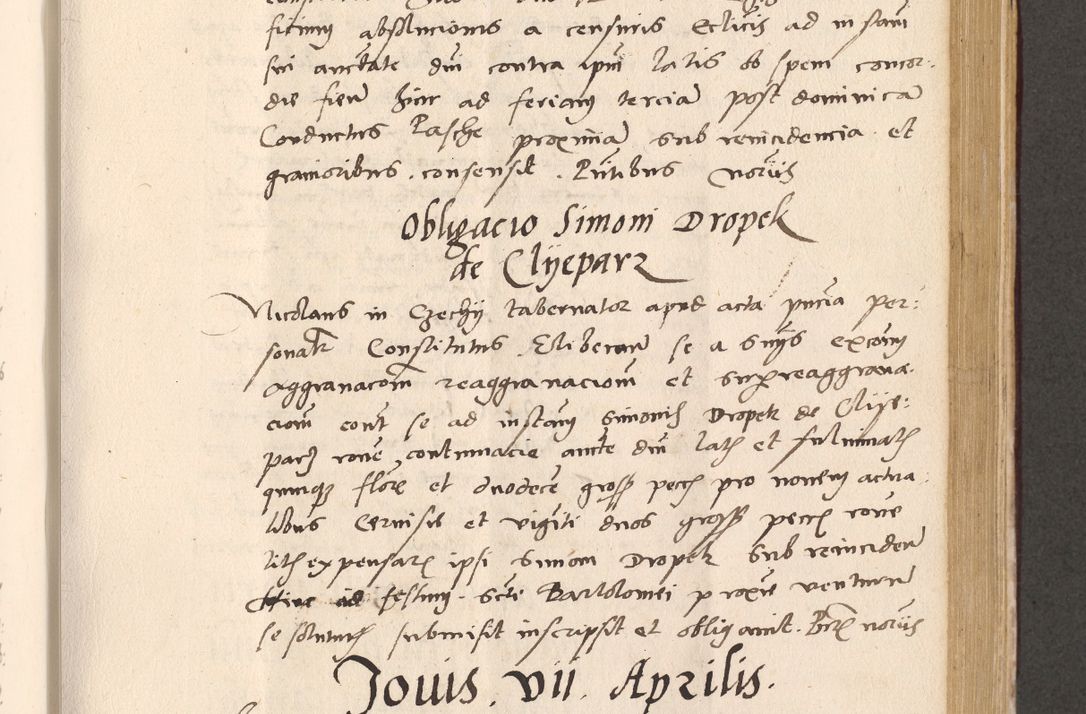 ficium absolucionis a censuris Eclicis ad instam
sui auctate dni contra ipm latis ob spem concor:
die fien hinc ad feriam tercia post dominica
Conductus Pasche proxima sub reincidencia et
gravioribus. consensit. Pntibus noriis
Obligacio Simoni Dropek
de Clijeparz
Nicolaus in Czechij tabernator apud acta pncia per:
sonalr Constitutus. Eliberare se a suijs excom
Aggravacom reaggravaciom et supreaggrava:
ciom cont se ad instam Simonis Dropek de Clije:
parz rone contumacie aucte dni latis et fulminatis
quinque flore et duodece gross pecc pro novem actua:
libus Cervisie et viginti duos gross pecc rone
litis expensar ipsi Simon Dropek sub reinciden
hinc ad festum scti Bartolomei proxie ventur
se soluturum submisit inscripsit et obligavit. Pntibus noriis
Jovis. vii. Aprilis.